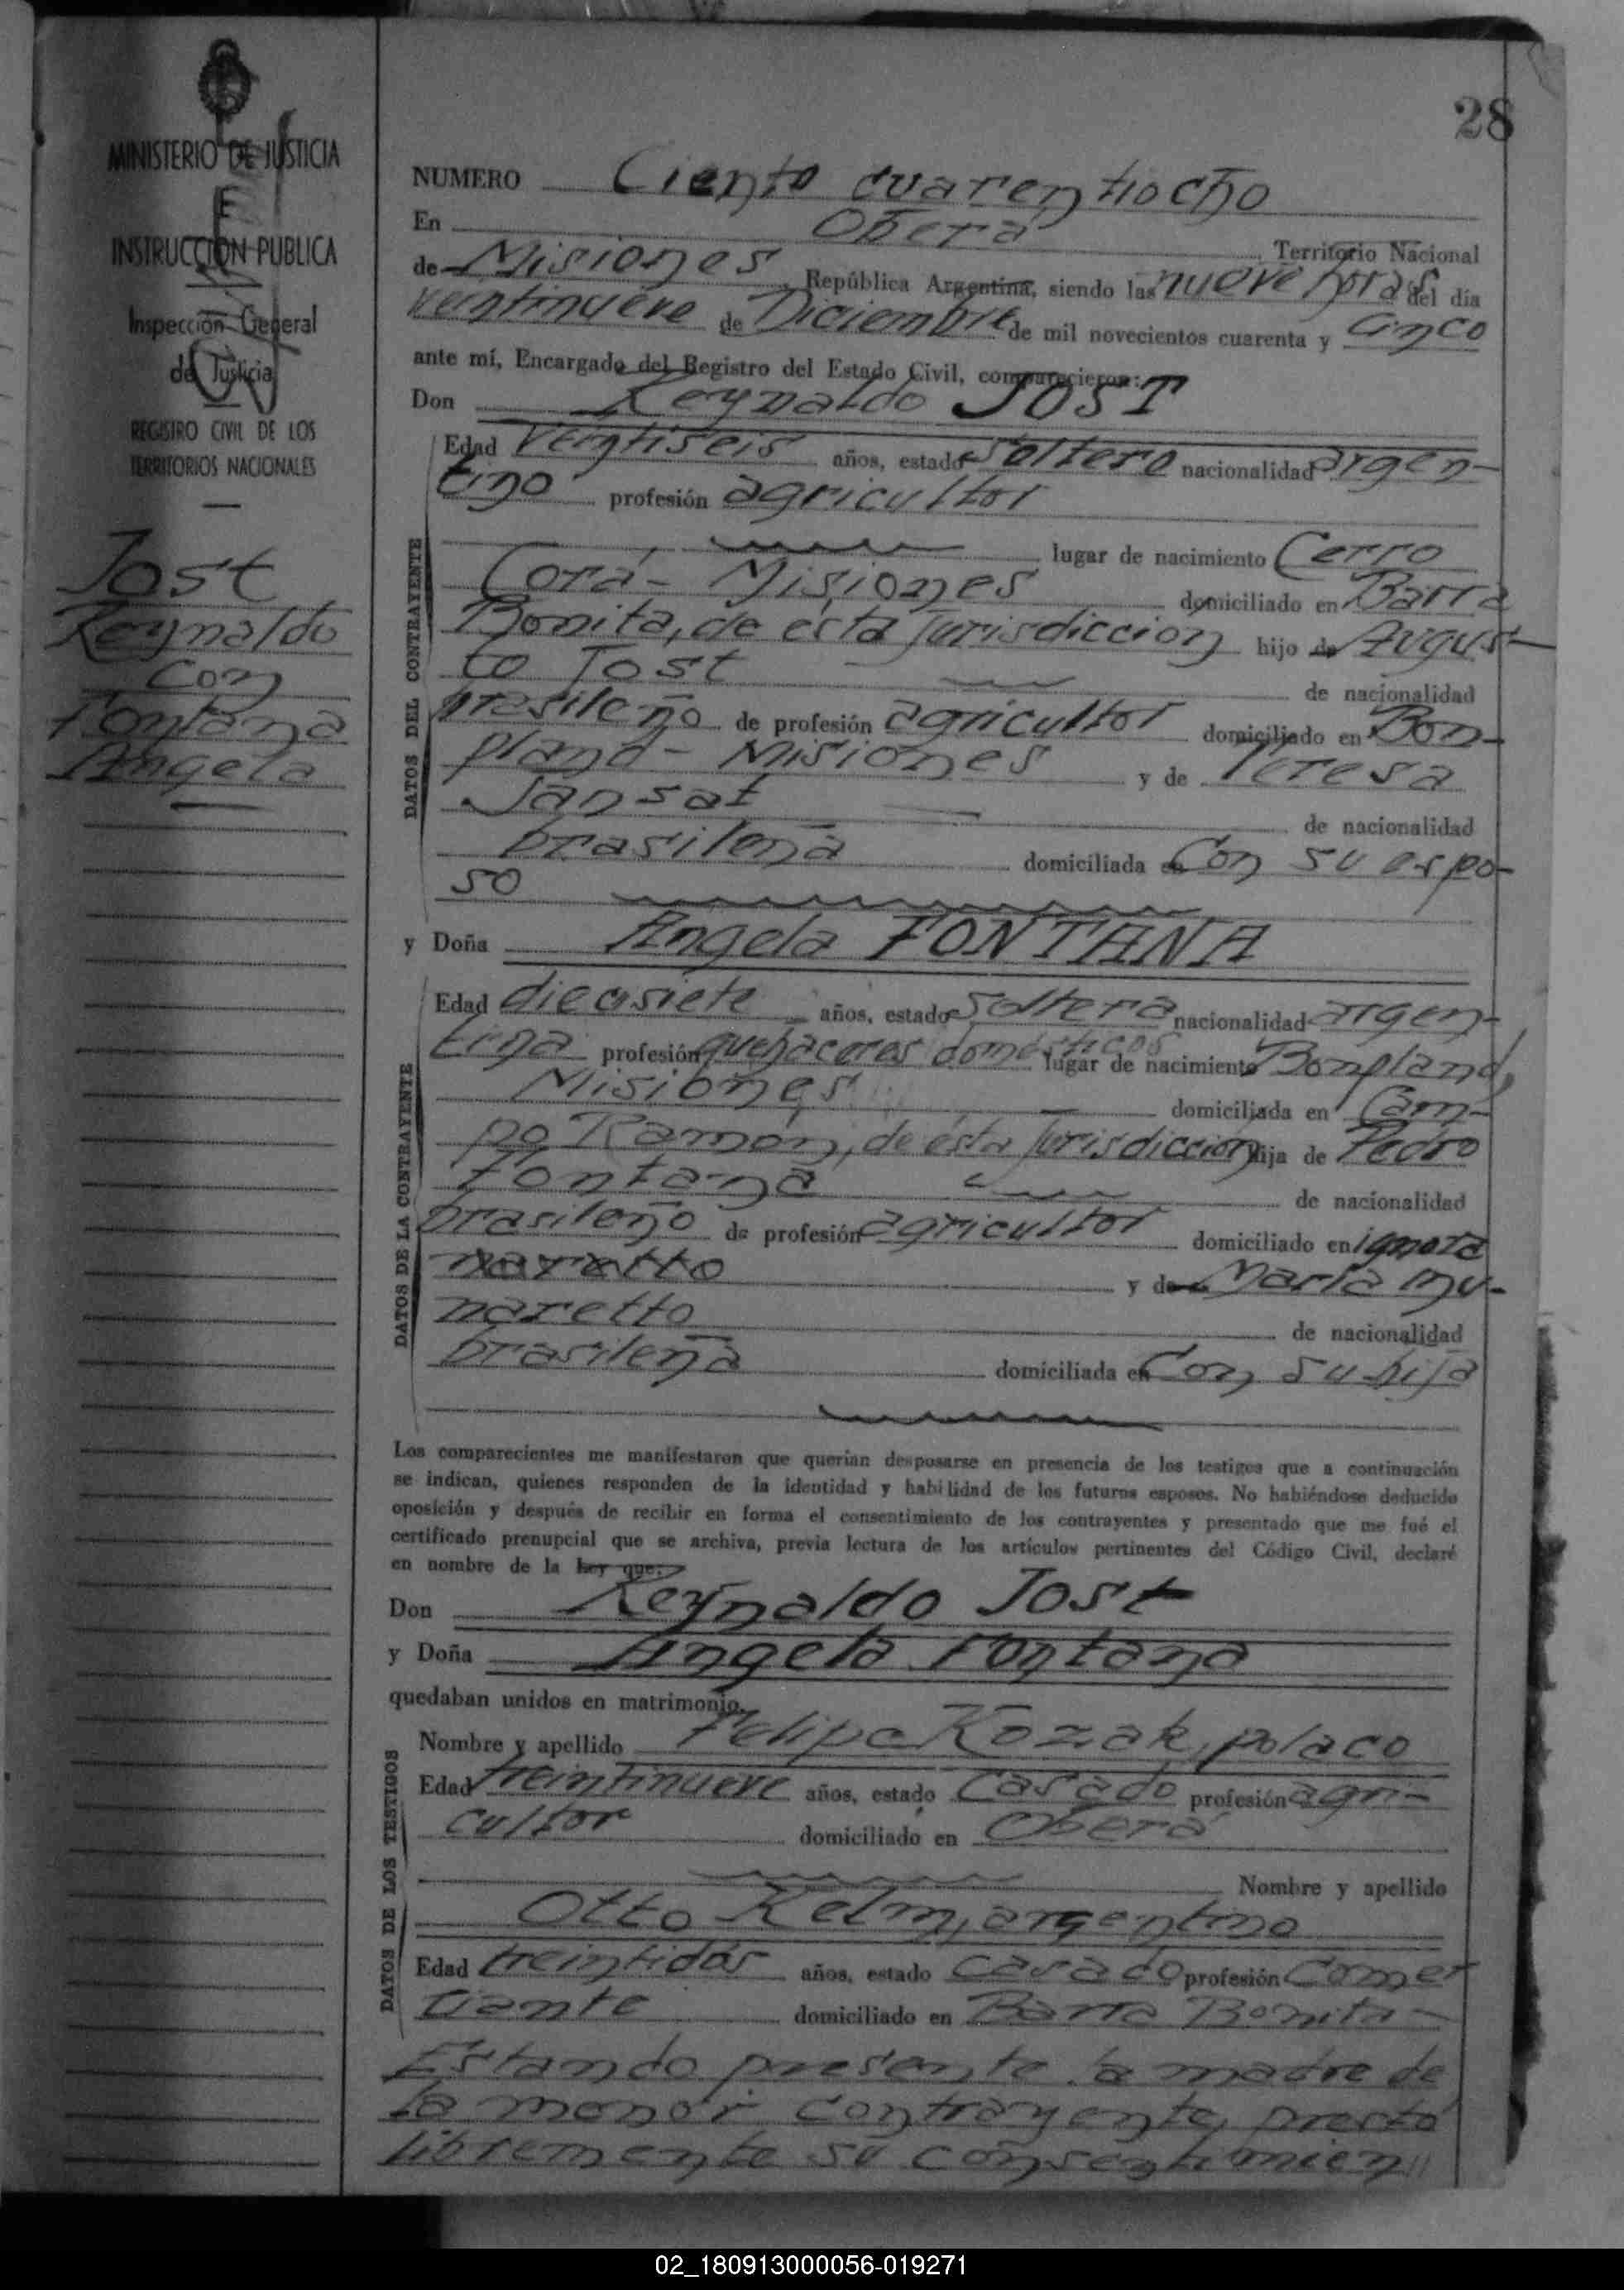 28
MINISTERIO DE JUSTICIA
E
INSTRUCCION PUBLICA
Inspección General
de Justicia
REGISTRO CIVIL DE LOS
TERRITORIOS NACIONALES
Jost
Reynaldo
con
Fontana
Angela
NUMERO Ciento cuarentiocho
En Oberá Territorio Nacional
de Misiones, República Argentina, siendo las nueve horas del día
veintinueve de Diciembre de mil novecientos cuarenta y cinco
ante mí, Encargado del Registro del Estado Civil, comparecieron:
Don Reynaldo JOST
DATOS DEL CONTRAYENTE
Edad veintiseis años, estado soltero nacionalidad argen-
tino profesión agricultor
lugar de nacimiento Cerro
Corá - Misiones domiciliado en Barra
Bonita, de ésta Jurisdiccion hijo de Augus-
to Jost de nacionalidad
brasileño de profesión agricultor domiciliado en Bon-
pland - Misiones y de Teresa
Jansat de nacionalidad
brasileña domiciliada en Con su espo-
so
y Doña Angela FONTANA
DATOS DE LA CONTRAYENTE
Edad diecisiete años, estado soltera nacionalidad argen-
tina profesión quehaceres domésticos lugar de nacimiento Bonpland,
Misiones domiciliada en Cam-
po Ramón, de ésta Jurisdiccion hija de Pedro
Fontana de nacionalidad
brasileño de profesión agricultor domiciliado en ignora
naretto y de Maria mu-
naretto de nacionalidad
brasileña domiciliada en Con su hija
Los comparecientes me manifestaron que querían desposarse en presencia de los testigos que a continuación
se indican, quienes responden de la identidad y habilidad de los futuros esposos. No habiéndose deducido
oposición y después de recibir en forma el consentimiento de los contrayentes y presentado que me fué el
certificado prenupcial que se archiva, previa lectura de los artículos pertinentes del Código Civil, declaré
en nombre de la ley que:
Don Reynaldo Jost
y Doña Angela Fontana
quedaban unidos en matrimonio.
DATOS DE LOS TESTIGOS
Nombre y apellido Felipe Kozak, polaco
Edad treintinueve años, estado casado profesión agri-
cultor domiciliado en Oberá
Nombre y apellido
Otto Kelm, argentino
Edad treintidós años, estado casado profesión Comer
ciante domiciliado en Barra Bonita -
Estando presente la madre de
la menor contrayente, prestó
libremente su consentimien //
02_180913000056-019271